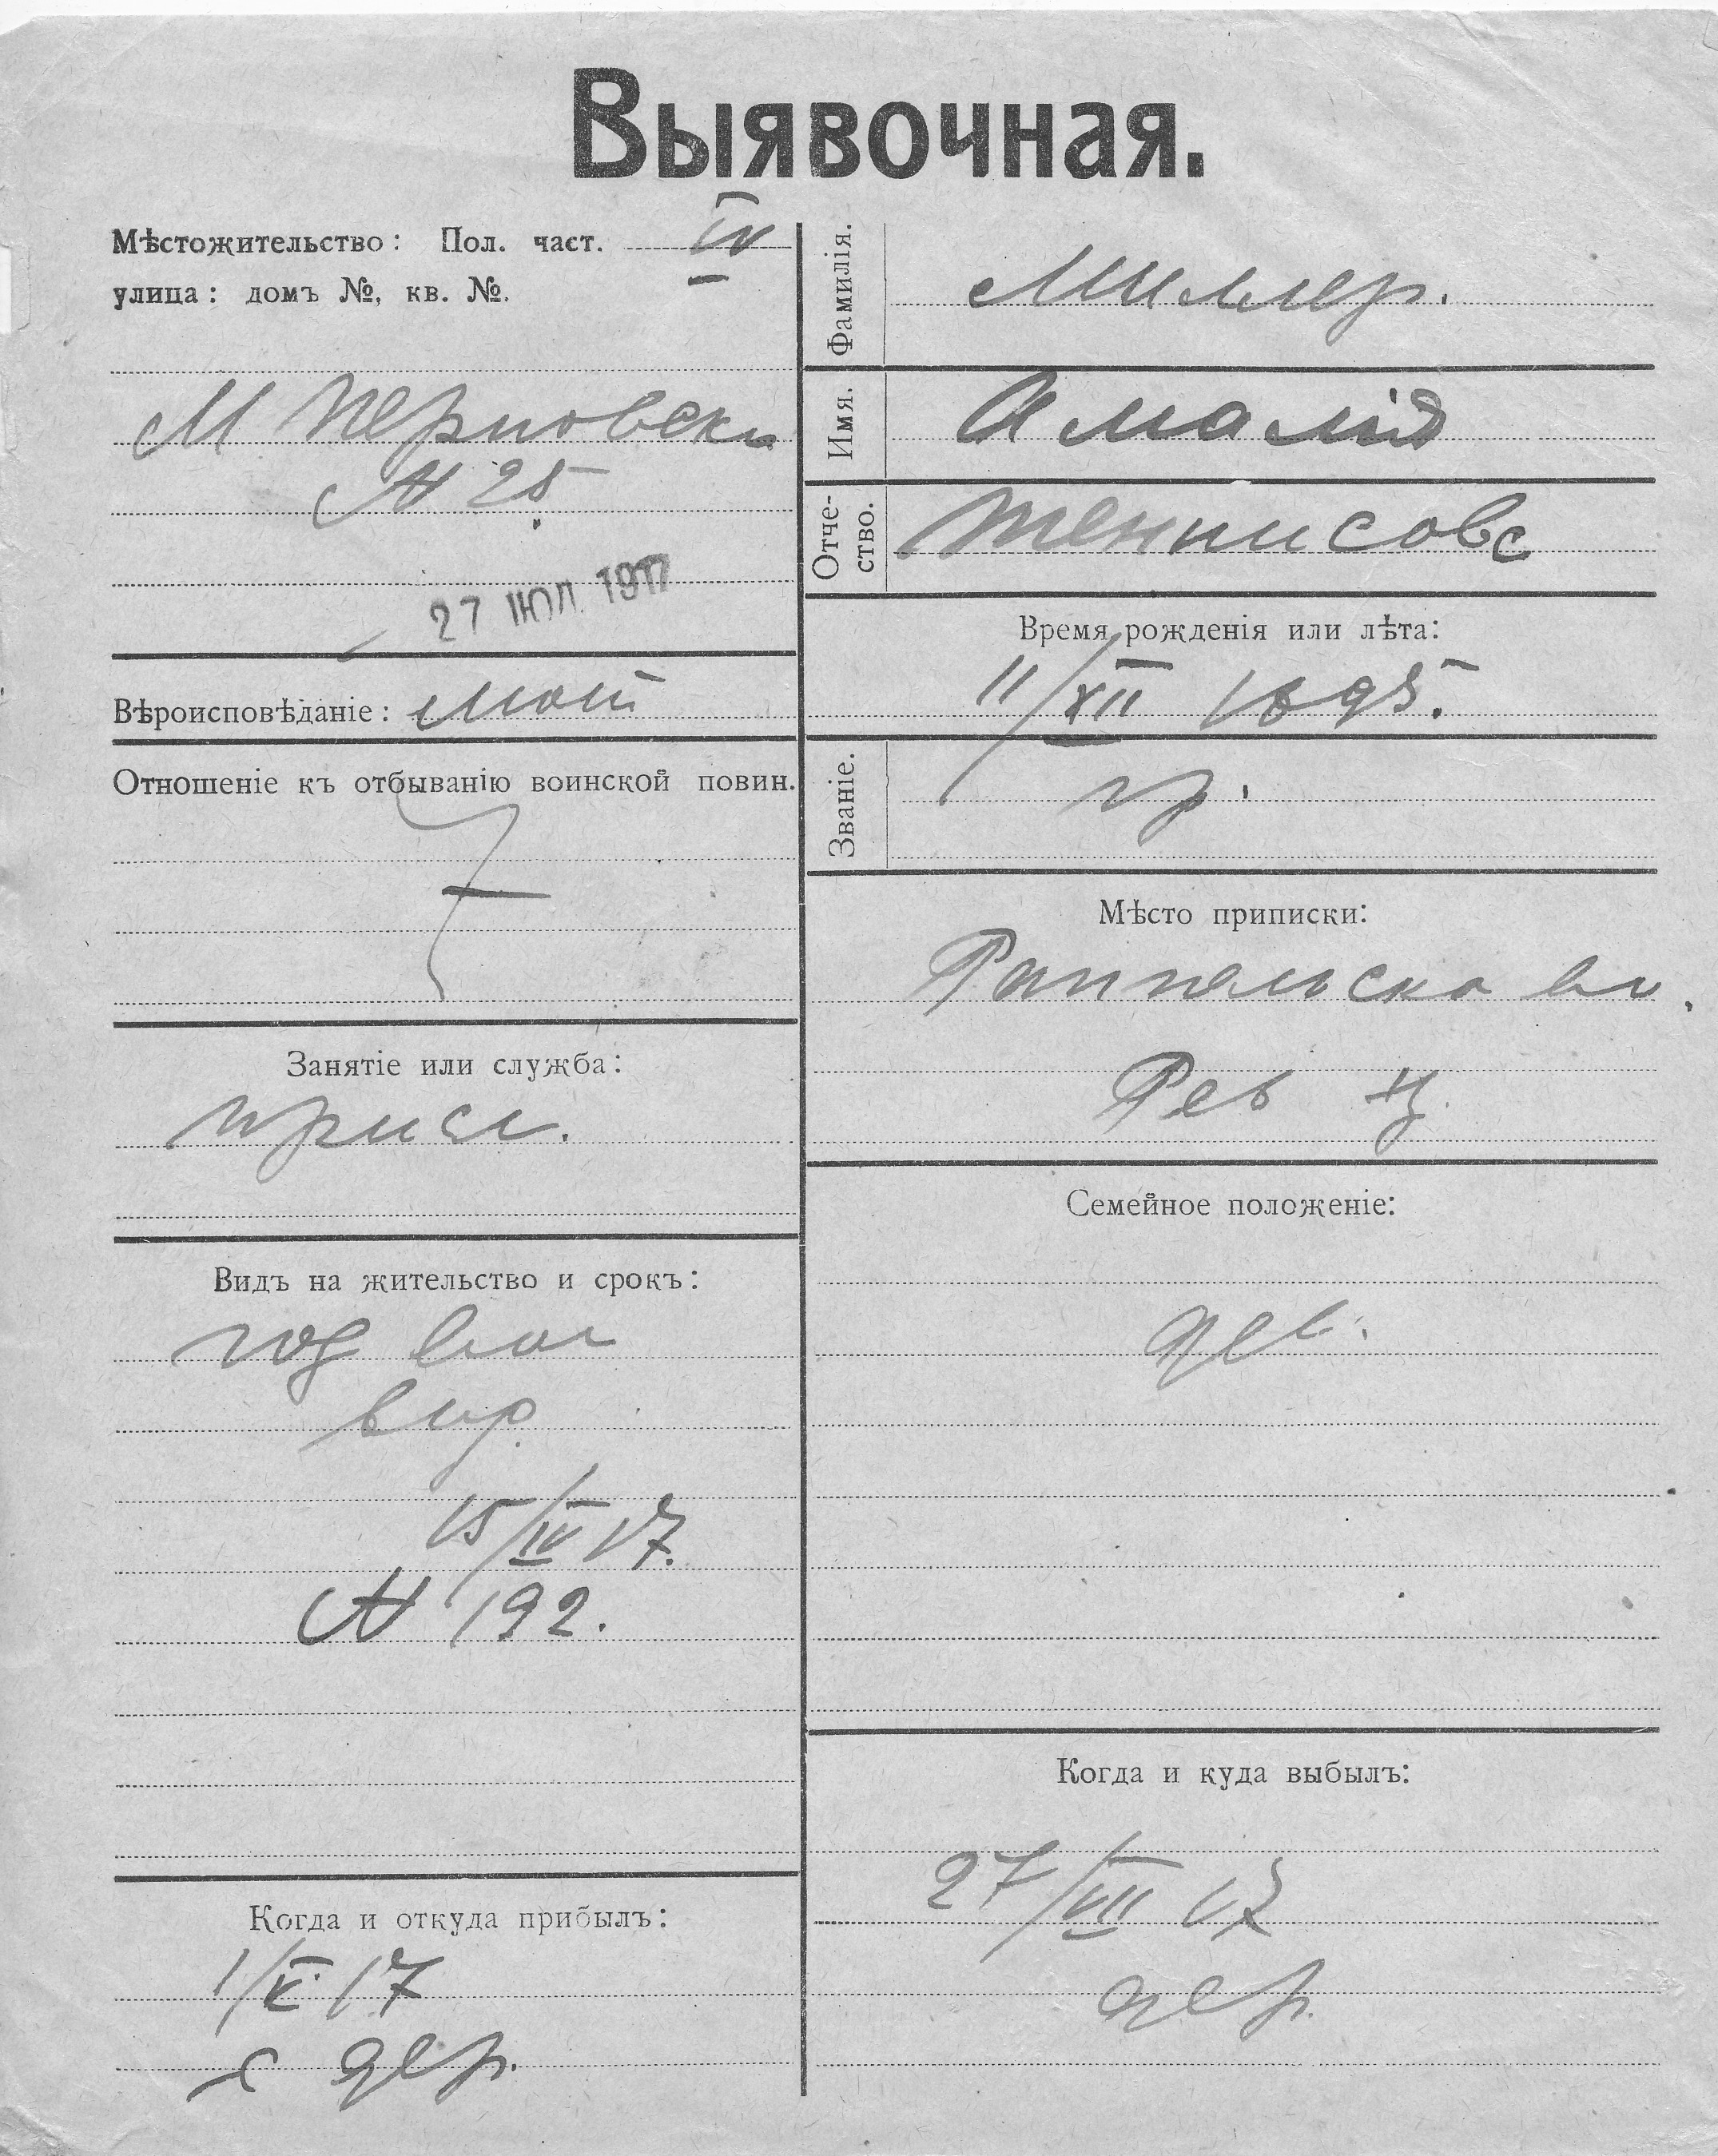 Выявочная.
Мѣстожительство: Пол. част. IV
улица: домъ №, кв. №.
М Перновска
№ 25
27 ІЮЛ. 1917
Вѣроисповѣданіе: лют
Отношеніе къ отбыванію воинской повин.
Занятіе или служба:
присл.
Видъ на жительство и срокъ:
год вол
вир
15/IV 17.
№ 192.
Когда и откуда прибылъ:
1/V 17
с дер.
Фамилія.
Миллер.
Имя.
Амалія
Отче-
ство.
Время рожденія или лѣта:
11/XII 1895.
Званіе.
кр.
Мѣсто приписки:
Раппельска вл.
Рев у.
Семейное положеніе:
дев.
Когда и куда выбылъ:
27/VII 17
дер.